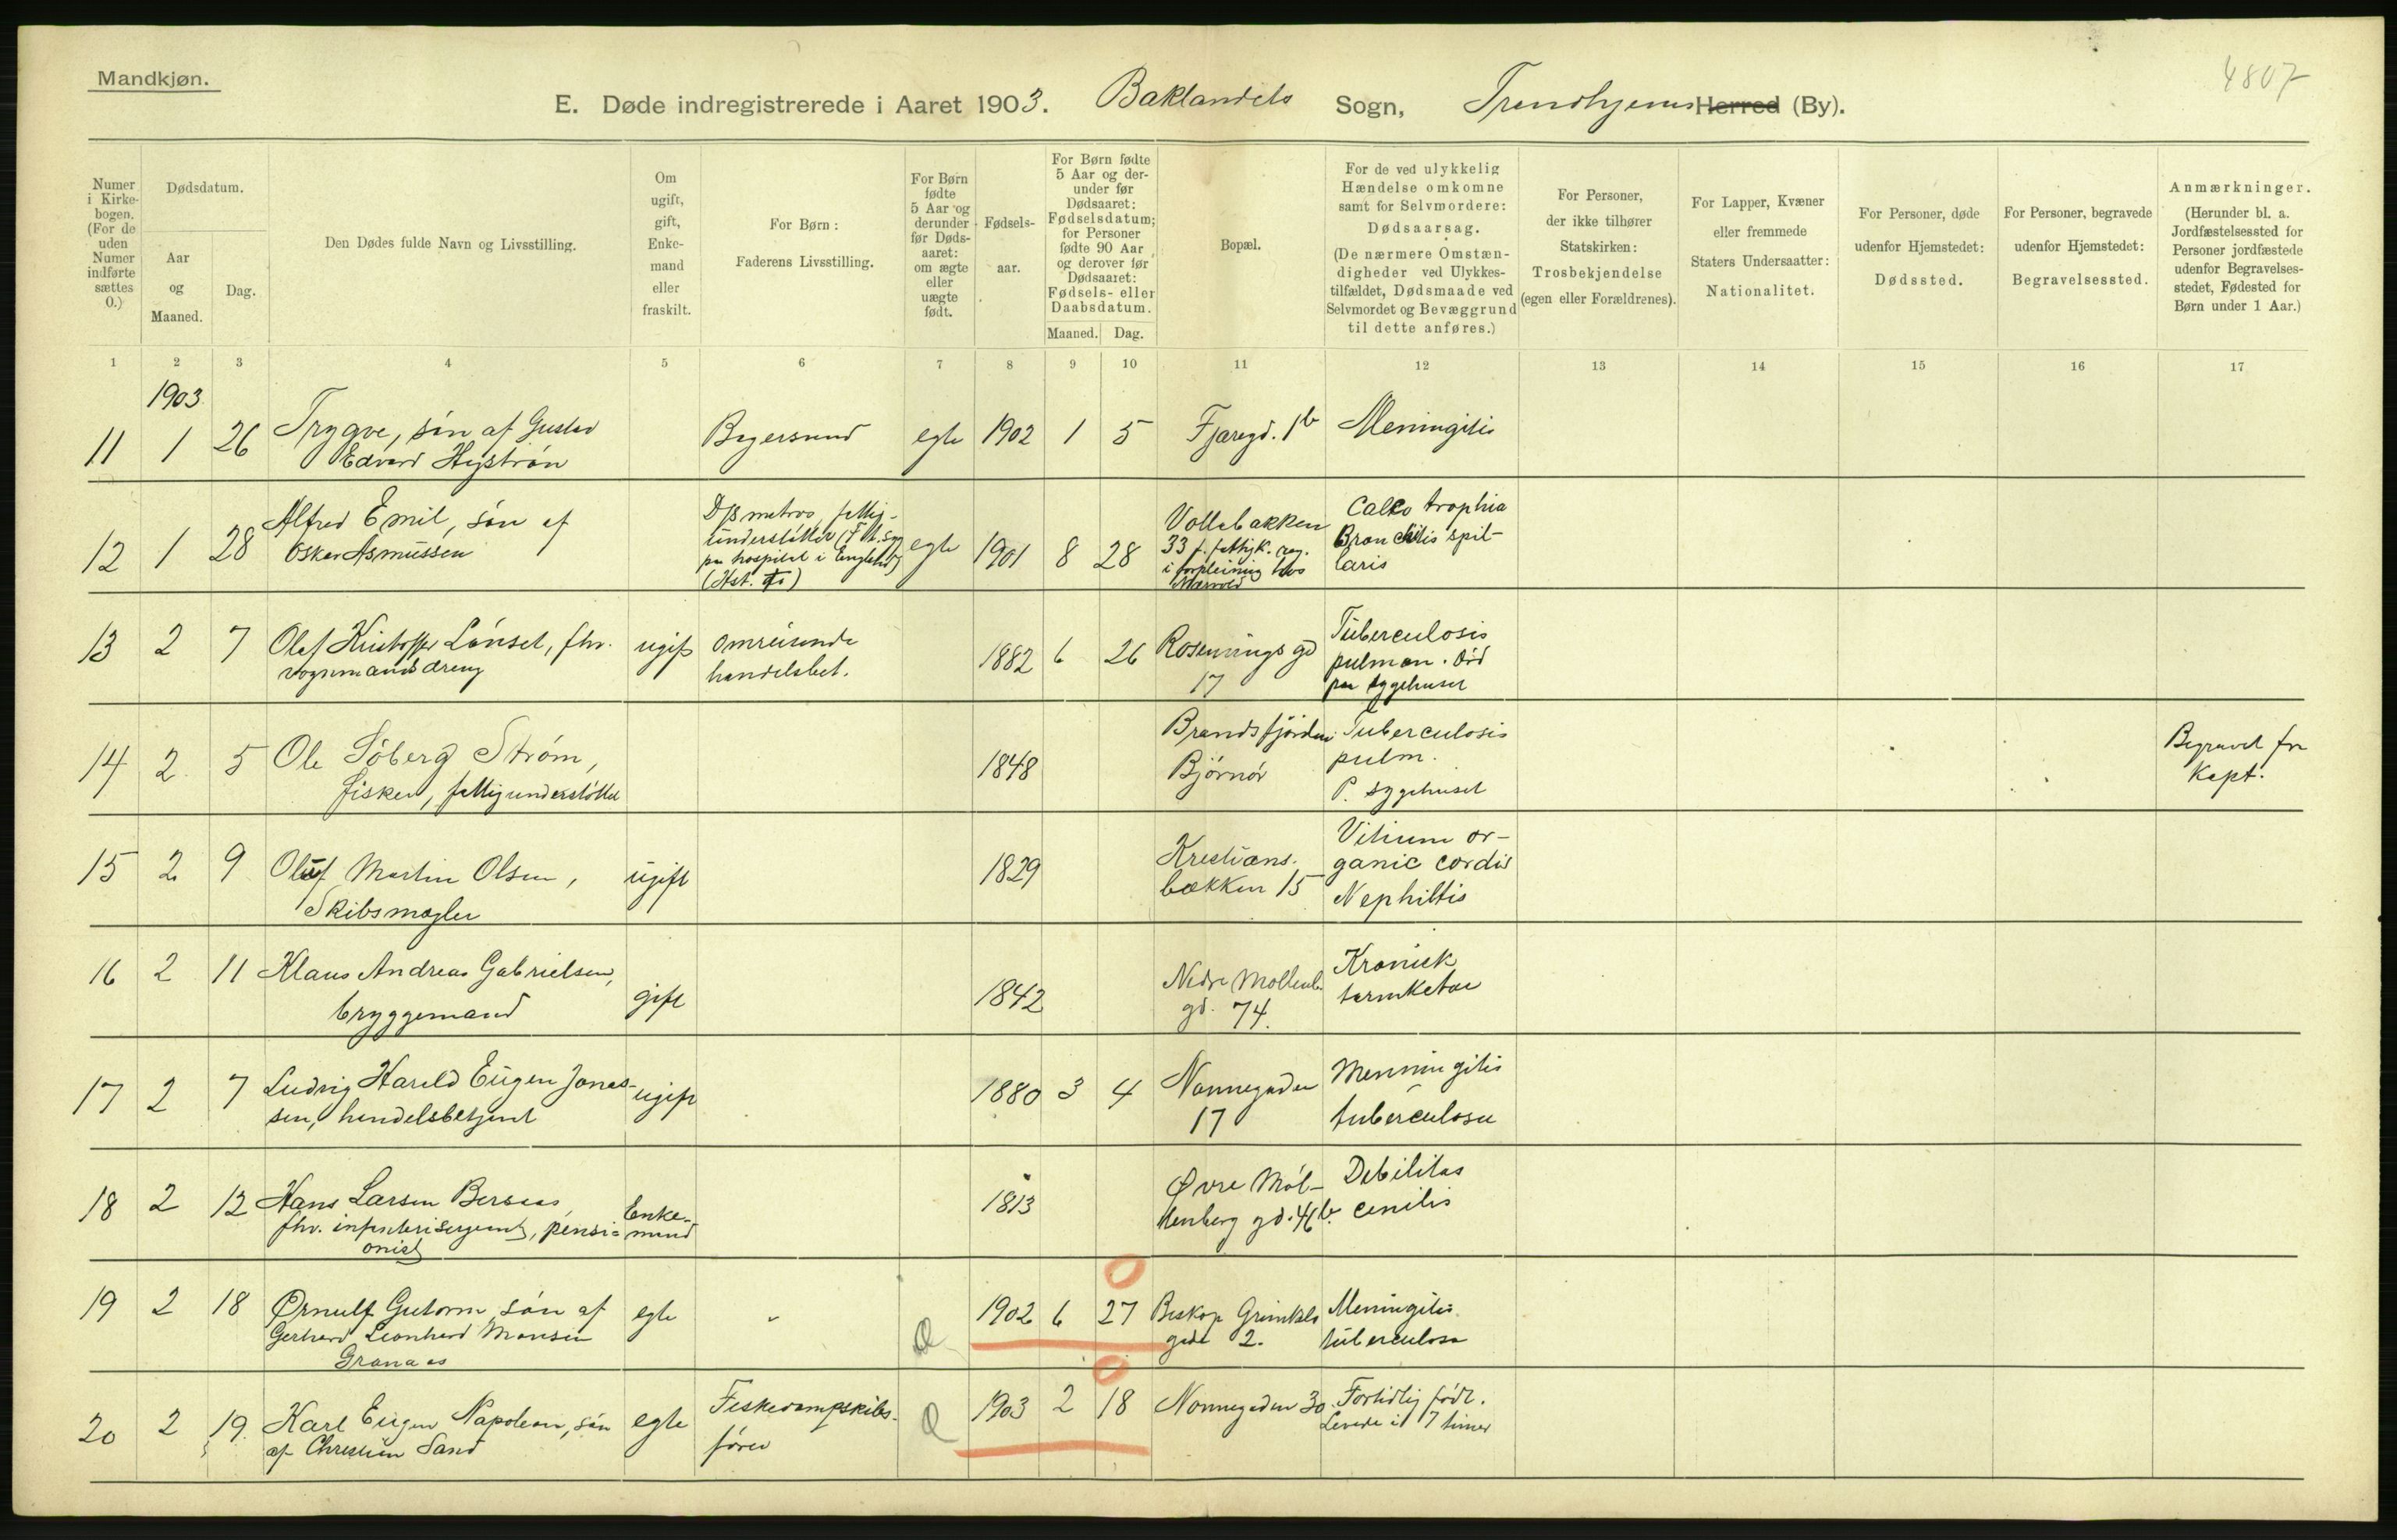 Mandkjøn.
4807
E. Døde indregistrerede i Aaret 1903. Baklandets Sogn, Trondhjems Herred (By).
Numer i Kirkebogen. (For de uden Numer indførte sættes 0.)
Dødsdatum.
Aar og Maaned.
Dag.
Den Dødes fulde Navn og Livsstilling.
Om ugift, gift, Enkemand eller fraskilt.
For Børn: Faderens Livsstilling.
For Børn fødte 5 Aar og derunder før Dødsaaret: om ægte eller uægte født.
Fødselsaar.
For Børn fødte 5 Aar og derunder før Dødsaaret: Fødselsdatum; for Personer fødte 90 Aar og derover før Dødsaaret: Fødsels- eller Daabsdatum.
Maaned. Dag.
Bopæl.
For de ved ulykkelig Hændelse omkomne samt for Selvmordere: Dødsaarsag. (De nærmere Omstændigheder ved Ulykkestilfældet, Dødsmaade ved Selvmordet og Bevæggrund til dette anføres.)
For Personer, der ikke tilhører Statskirken: Trosbekjendelse (egen eller Forældrenes).
For Lapper, Kvæner eller fremmede Staters Undersaatter: Nationalitet.
For Personer, døde udenfor Hjemstedet: Dødssted.
For Personer, begravede udenfor Hjemstedet: Begravelsessted.
Anmærkninger. (Herunder bl. a. Jordfæstelsessted for Personer jordfæstede udenfor Begravelsesstedet, Fødested for Børn under 1 Aar.)
1 2 3 4 5 6 7 8 9 10 11 12 13 14 15 16 17
1903
11 1 26 Trygve, søn af Gustav
Edvard Hystrøn
Bagersvend egte 1902 1 5 Fjæregd. 1b Meningitis
12 1 28 Alfred Emil, søn af
Oskar Asmussen
D/s matros, fattig-
understøttet
paa hospital i England
egte 1901 8 28 Vollabakken
33
i forpleining hos
Calko trophia
Bronchitis spil-
laris
13 2 7 Olaf Kristoffer Lønset, fhv.
vognmandsdreng
ugift omreisende
handelsbet.
1882 6 26
17
Tuberculosis
pulmon. død
paa sygehuset
14 2 5 Ole Søberg Strøm,
fisker, fattigunderstøttet
1848 Brandsfjorden
Bjørnør
Tuberculosis
pulm.
P. sygehuset
Begravet fra
Kapt.
15 2 9 Oluf Martin Olsen,
Skibsmægler
ugift 1829 Kristians-
bakken 15
Vitium or-
ganic cordis
Nephiltis
16 2 11 Klaus Andreas Gabrielsen,
bryggemand
gift 1842 Nedre Mollenb.
gd. 74.
Kronisk
tarmkatar
17 2 7 Ludvig Harald Eugen Jonas-
sen, handelsbetjent
ugift 1880 3 4 Nonnegaden
17
Menningitis
tuberculosa
18 2 12 Hans Larsen Bersaas,
fhv. infanterisergeant, pensi-
onist
Enke-
mand
1813 Øvre Møl-
lenberg gd. 46b.
Debilitas
cenilis
19 2 18 Ørnulf Gutorm, søn af
Gerhard Leonhard Monsen
Granaas
egte " 1902 6 27 Biskop Grimkels
gade 2.
Meningitis
tuberculosa
20 2 19 Karl Eugen Napoleon, søn
af Christian Sand
egte Fiskedampskibs-
fører
1903 2 18 Nonnegaden 30. Fortidlig født.
Levede i 7 timer